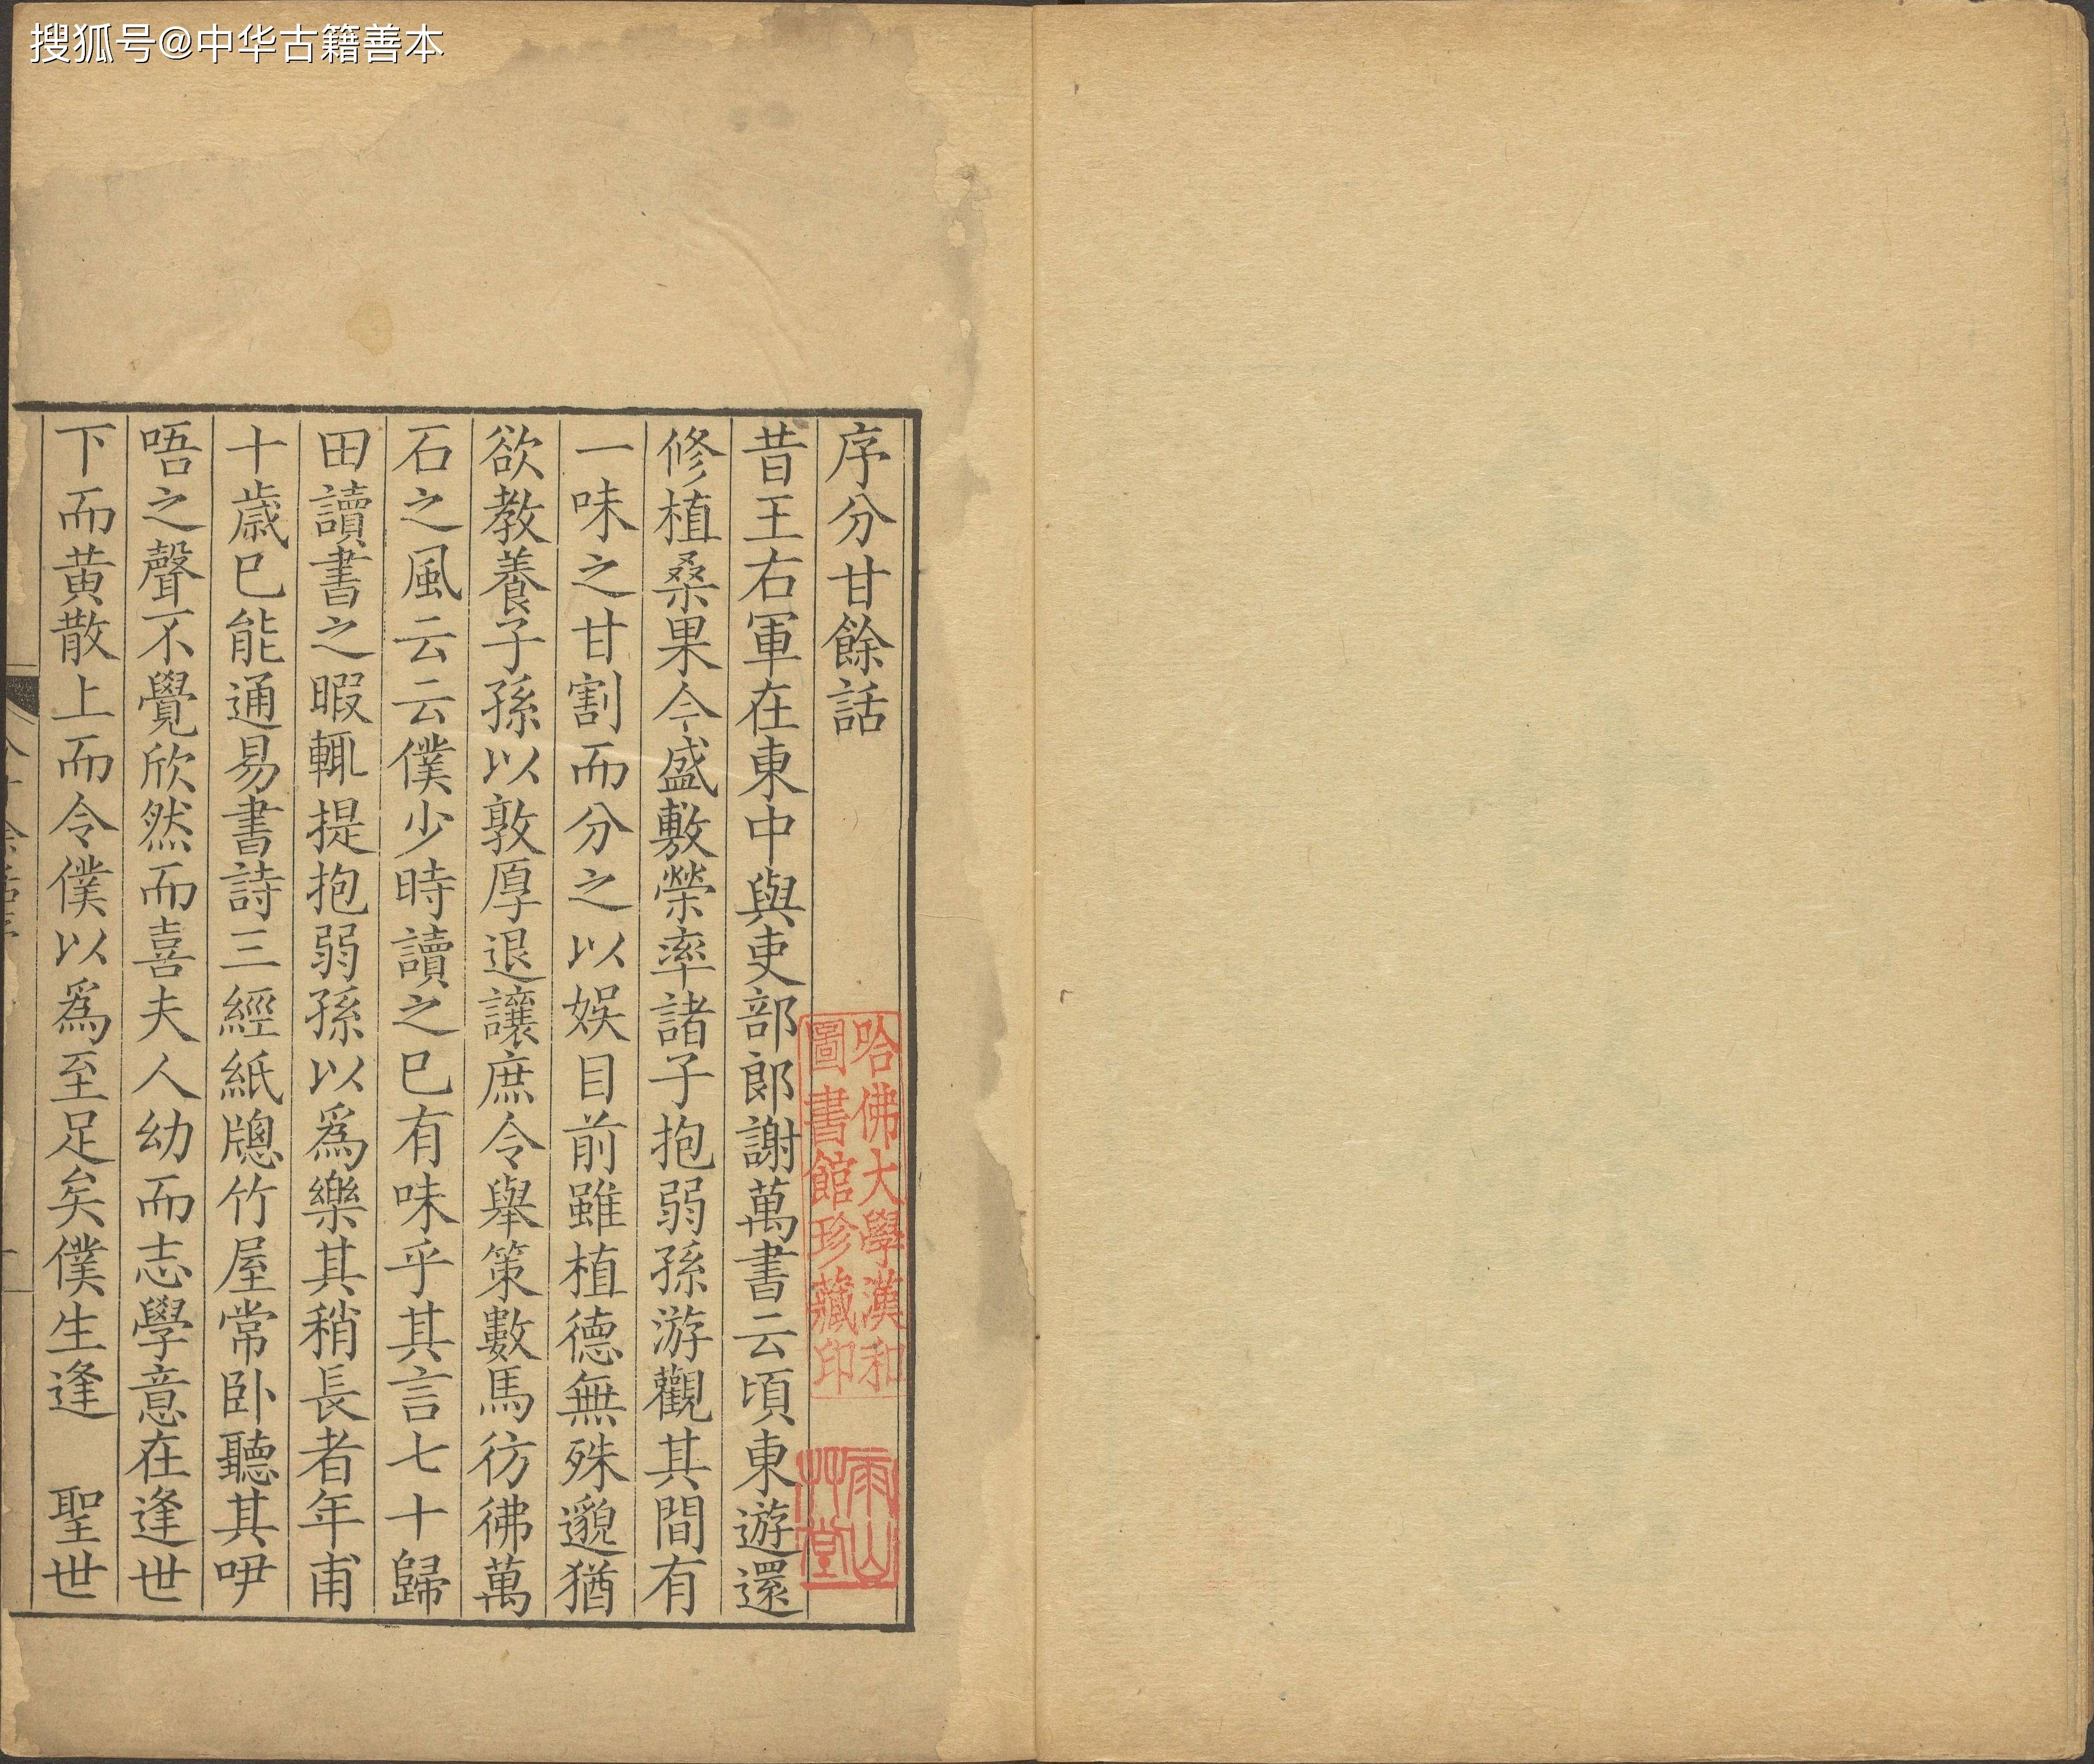 搜狐号@中华古籍善本
序分甘餘話
昔王右軍在東中與吏部郎謝萬書云頃東遊還
修植桑果今盛敷榮率諸子抱弱孫游觀其間有
一味之甘割而分之以娛目前雖植德無殊邈猶
欲教養子孫以敦厚退讓庶令舉策數馬彷彿萬
石之風云云僕少時讀之巳有味乎其言七十歸
田讀書之暇輒提抱弱孫以爲樂其稍長者年甫
十歲巳能通易書詩三經紙牎竹屋常卧聽其吚
唔之聲不覺欣然而喜夫人幼而志學意在逢世
下而黄散上而令僕以爲至足矣僕生逢 聖世
哈佛大學漢和
圖書館珍藏印
雨山
艸堂